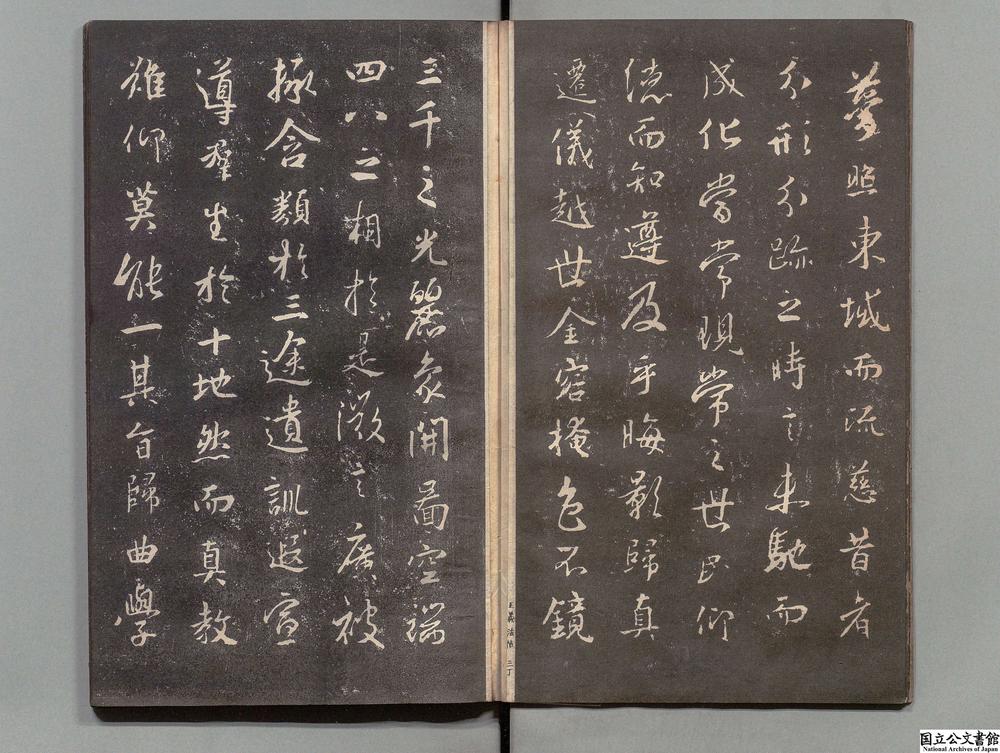 夢照東城而流慈昔者
分形分跡之時言未馳而
成化當常現常之世民仰
德而知遵及乎晦影歸真
遷儀越世金容掩色不鏡
三千之光麗象開圖空端
四八之相於是微言廣被
拯含類於三途遺訓遐宣
導羣生於十地然而真教
難仰莫能一其旨歸曲學
三丁
国立公文書館
National Archives of Japan